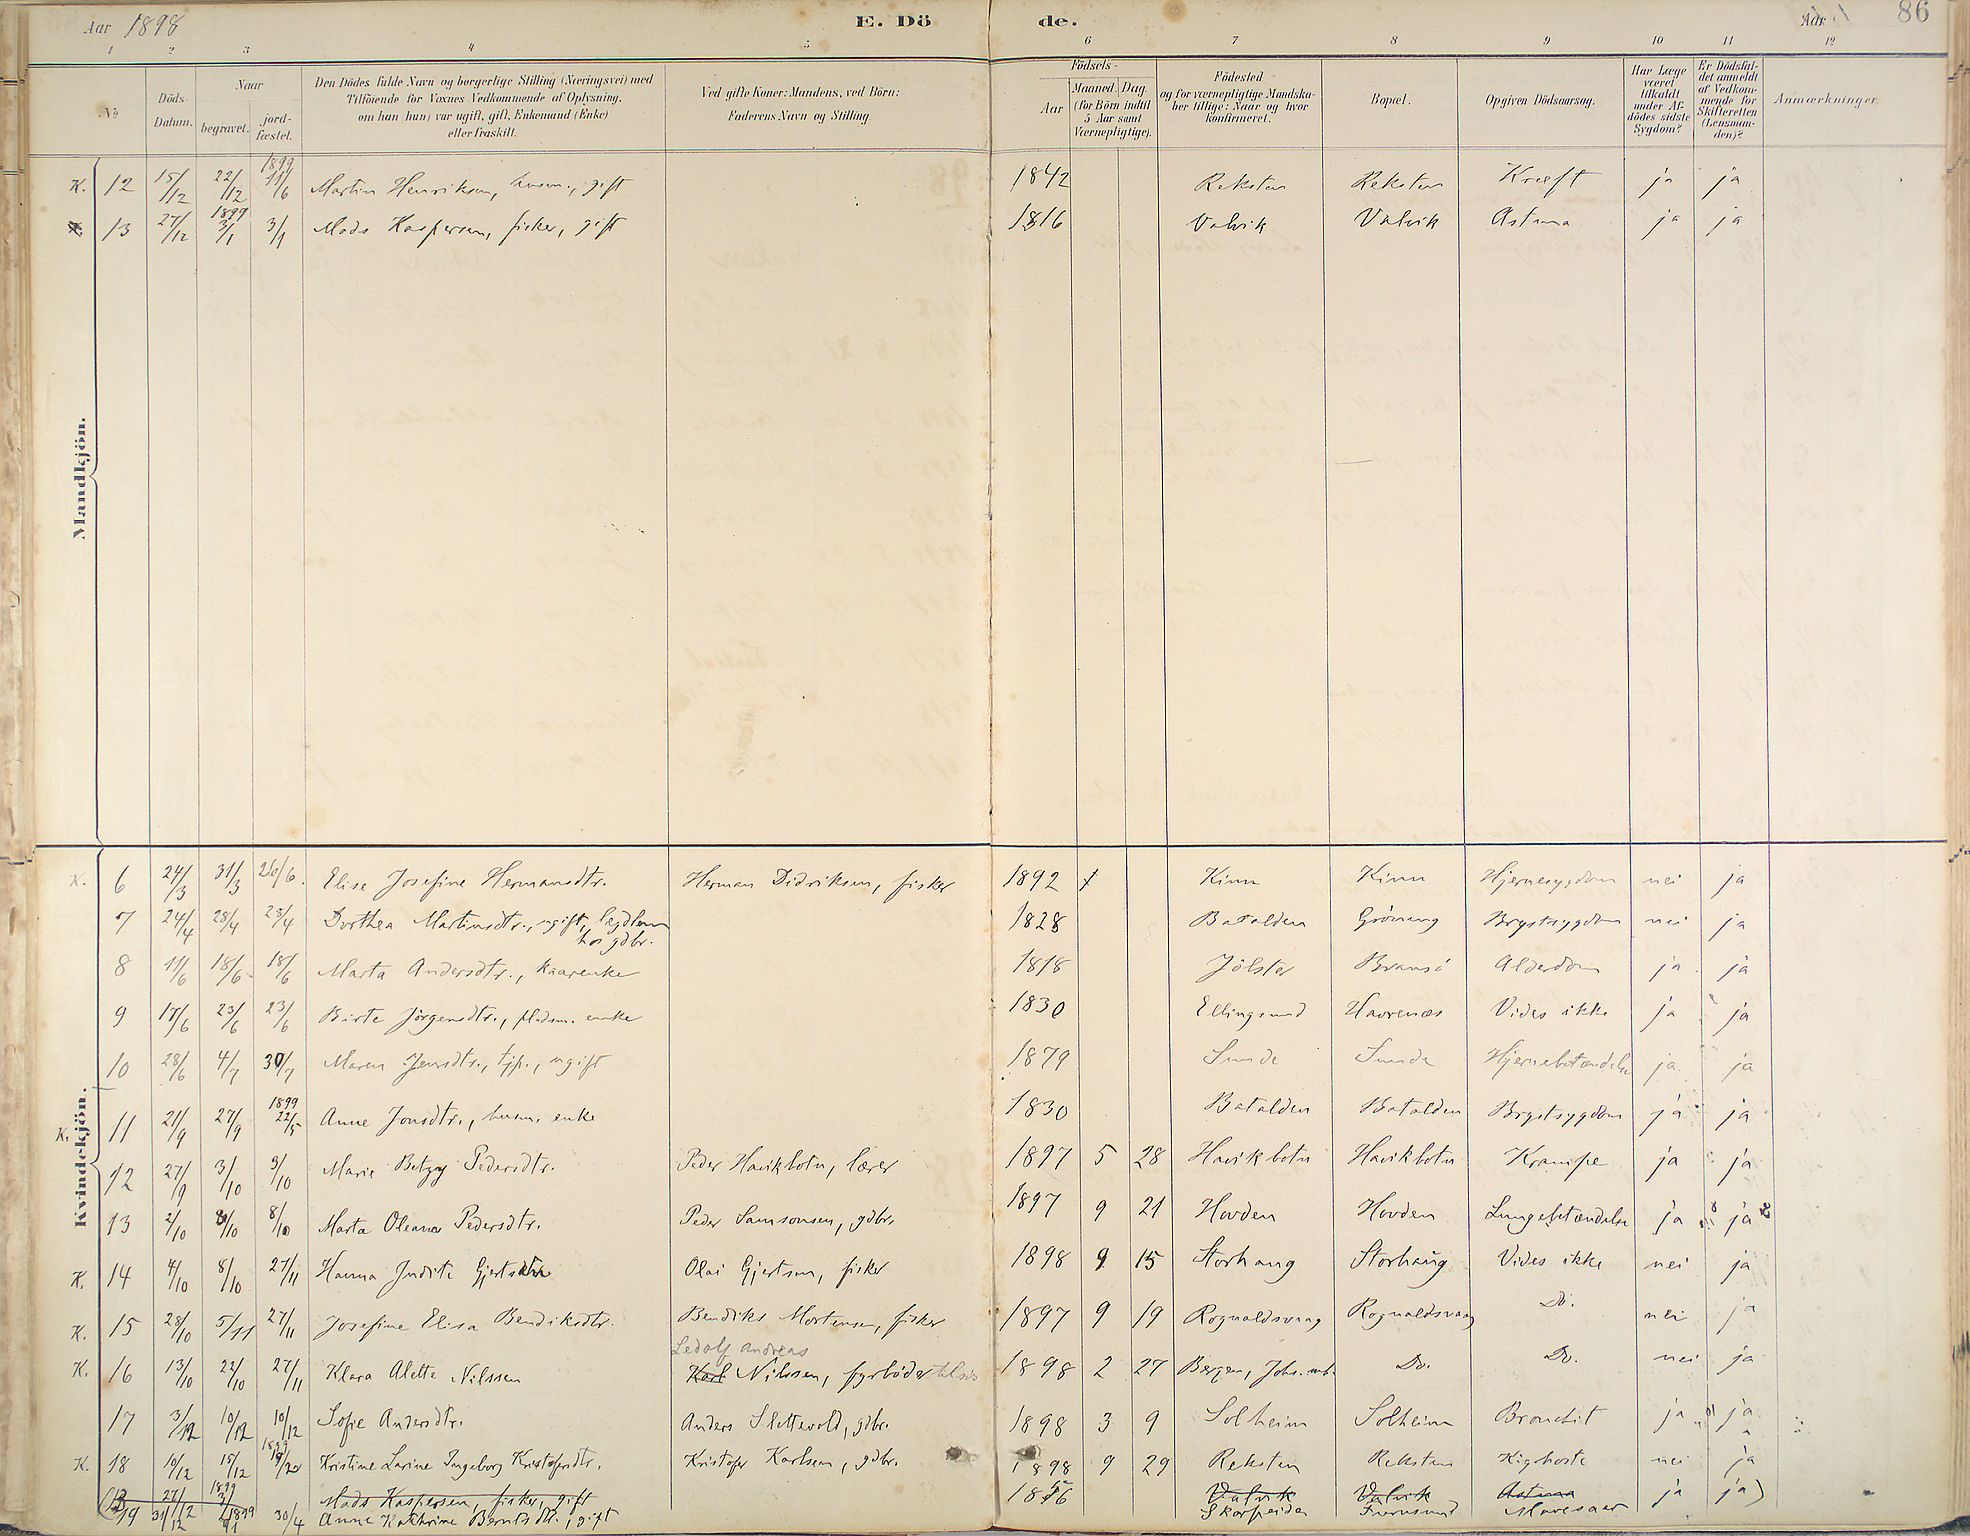 Aar 1898 E. Döde. Aar 86
1 2 3 4 5 6 7 8 9 10 11 12
№ Döds-Datum. Naar begravet. jord-fæstet. Den Dödes fulde Navn og borgerlige Stilling (Næringsvei) med Tilföiende for Voxnes Vedkommende af Oplysning, om han (hun) var ugift, gift, Enkemand (Enke) eller fraskilt. Ved gifte Koner: Mandens, ved Börn: Faderens Navn og Stilling. Födsels- Aar Maaned. Dag. (for Börn indtil 5 Aar samt Værnepligtige). Födested og for værnepligtige Mandskaber tillige: Naar og hvor konfirmeret. Bopæl. Opgiven Dödsaarsag. Har Læge været tilkaldt under Afdödes sidste Sygdom? Er Dödsfaldet anmeldt af Vedkommende for Skifteretten (Lensmanden)? Anmærkninger.
Mandkjön.
K. 12 15/12 22/12 1899 11/6 Martin Henriksen, husm., gift 1842 Reksten Reksten Kræft ja ja
K. 13 27/12 1899 3/1 3/1 Mads Kaspersen, fisker, gift 1816 Valvik Valvik Astma ja ja
Kvindekjön.
K. 6 24/3 31/3 26/6. Elise Josefine Hermansdtr. Herman Didriksen, fisker 1892 Kinn Kinn Hjernesygdom nei ja
7 24/4 28/4 28/4 Dorthea Martinsdtr., ugift, lægdlem hos gdbr. 1828 Batalden Gröning Brystsygdom nei ja
8 11/6 18/6 18/6 Marta Andersdtr., kaarenke 1818 Jölster Bransö Alderdom ja ja
9 17/6 23/6 23/6 Birte Jörgensdtr., pladsm. enke 1830 Ellingsund Havrenæs Vides ikke ja ja
10 28/6 4/7 30/7 Maren Jensdtr., tjp., ugift 1879 Sunde Sunde Hjernebetændelse ja ja
K. 11 21/9 27/9 1899 22/5 Anne Jonsdtr., husm. enke 1830 Batalden Batalden Brystsygdom ja ja
12 27/9 3/10 3/10 Marie Betzy Pedersdtr. Peder Havikbotn, lærer 1897 5 28 Havikbotn Havikbotn Krampe ja ja
13 2/10 8/10 8/10 Marta Oleana Pedersdtr. Peder Samsonsen, gdbr. 1897 9 21 Hovden Hovden Lungebetændelse ja ja
K. 14 4/10 8/10 27/11 Hanna Judite Gjertsdtr. Olai Gjertsen, fisker 1898 9 15 Storhaug Storhaug Vides ikke nei ja
K. 15 28/10 5/11 27/11 Josefine Elisa Bendiksdtr. Bendiks Mortensen, fisker 1897 9 19 Rognaldsvaag Rognaldsvaag Do. nei ja
Ledolf Andreas
K. 16 13/10 22/10 27/11 Klara Alette Nilssen Karl Nilssen, fyrböder 1898 2 27 Bergen, Johs. mb. Do. Do. nei ja
17 3/12 10/12 10/12 Sofie Andersdtr. Anders Slettevold, gdbr. 1898 3 9 Solheim Solheim Bronchit ja ja
K. 18 10/12 15/12 1899 Kristine Larine Ingeborg Kristofersdtr. Kristofer Karlsen, gdbr. 1898 9 29 Reksten Reksten Kighoste nei ja
(13 27/12 1899 3/1 Mads Kaspersen, fisker, gift 1816 Valvik Valvik Astma ja ja)
19 31/12 1899 30/4 Anne Kathrine Berntsdtr., gift Skorpeiden Mavesaar